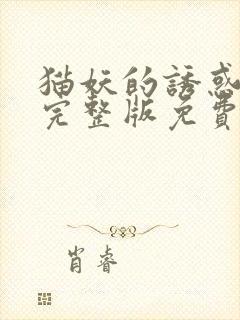 猫妖的誘惑
完整版免費
肖睿